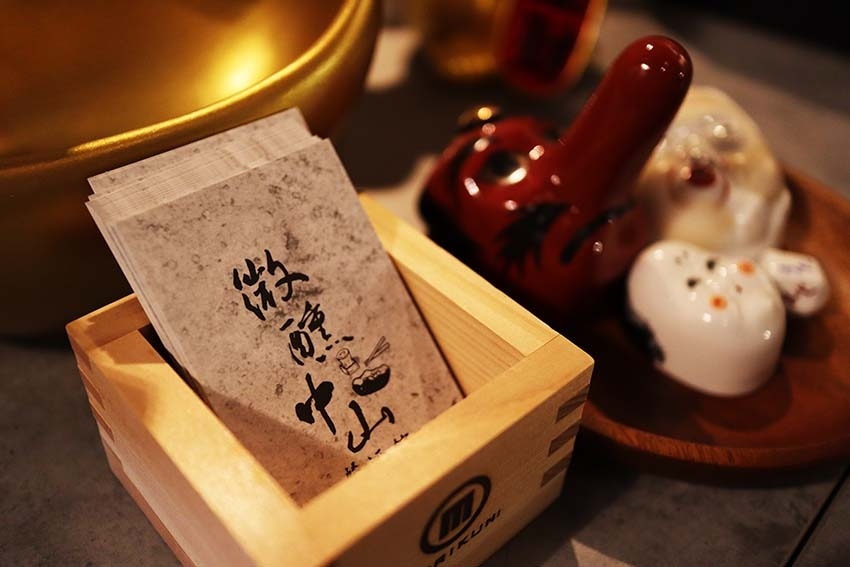 微醺中山
RIKUNI